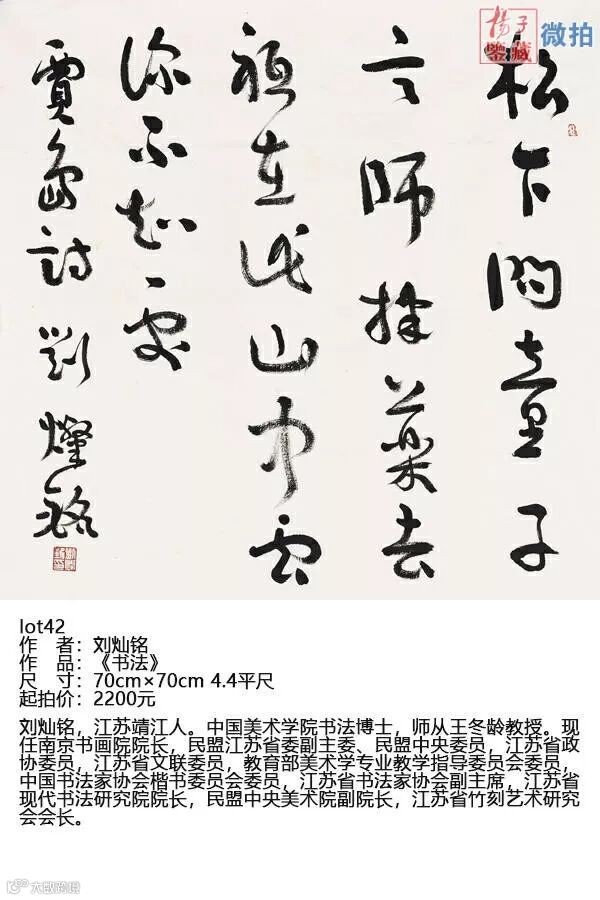 楊子
鑒藏 微拍
松下問童子
言師採藥去
祗在此山中雲
深不知處
賈島詩 劉燦銘
lot42
作 者：刘灿铭
作 品：《书法》
尺 寸：70cm×70cm 4.4平尺
起拍价：2200元
刘灿铭，江苏靖江人。中国美术学院书法博士，师从王冬龄教授。现
任南京书画院院长，民盟江苏省委副主委、民盟中央委员，江苏省政
协委员，江苏省文联委员，教育部美术学专业教学指导委员会委员，
中国书法家协会楷书委员会委员，江苏省书法家协会副主席，江苏省
现代书法研究院院长，民盟中央美术院副院长，江苏省竹刻艺术研究
会会长。
大数跨境